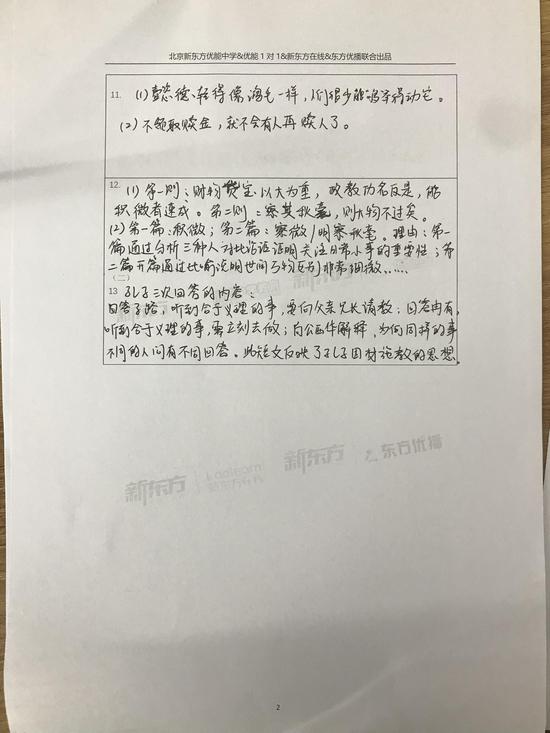 北京新东方优能中学&优能1对1&新东方在线&东方优播联合出品
11. (1) 懿德、轻得像鸿毛一样,人们很少能够举得动它。
(2) 不领取赎金,就不会有人再赎人了。
12. (1) 第一则:财物货宝以大为重,政教功名反是,能
积微者速成。第二则:察其秋毫,则大物不过矣。
(2) 第一篇:积微;第二篇:察微/明察秋毫。理由:第一
篇通过分析三种人对比论证证明关注日常小事的重要性;第
二篇开篇通过比喻说明世间万物区别非常细微……
(二)
13 孔子三次回答的内容:
回答子路,听到合于义理的事,要向父亲兄长请教;回答由有,
听到合于义理的事,要立刻去做;向公西华解释,为何同样的事
不同的人问有不同回答。此短文反映了孔子因材施教的思想
新东方
Leelearn
新东方在线
新东方
东方优播
2